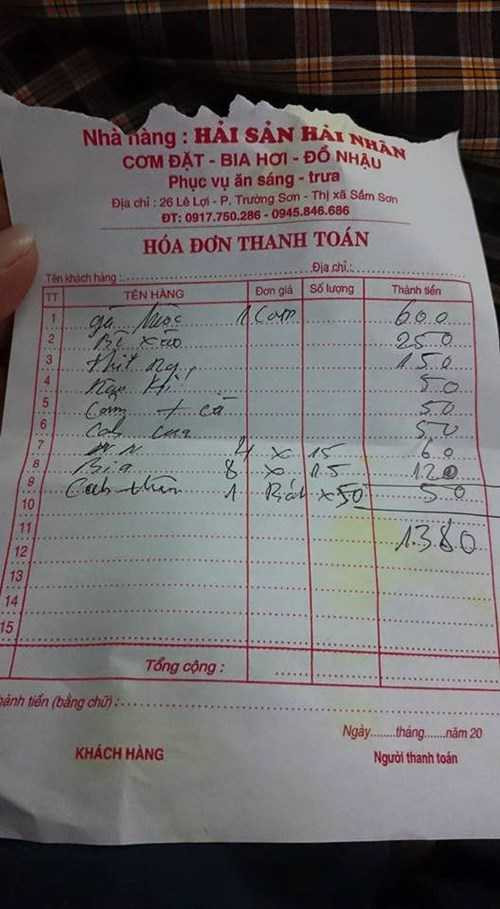 Nhà hàng : HẢI SẢN HẢI NHÂN
CƠM ĐẶT - BIA HƠI - ĐỒ NHẬU
Phục vụ ăn sáng - trưa
Địa chỉ : 26 Lê Lợi - P. Trường Sơn - Thị xã Sầm Sơn
ĐT: 0917.750.286 - 0945.846.686
HÓA ĐƠN THANH TOÁN
Tên khách hàng : Địa chỉ :
TT TÊN HÀNG Đơn giá Số lượng Thành tiền
1 gà luộc 1 Con 600
2 Bê xào 250
3 thịt 150
4 50
5 Cơm + cà 50
6 Canh cua 50
7 4 x 15 60
8 Bia 8 x 15 120
9 Canh 1 Bát x 50 50
10
11 1380
12
13
14
15
Tổng cộng :
Thành tiền (bằng chữ) :
Ngày........tháng.......năm 20
KHÁCH HÀNG Người thanh toán